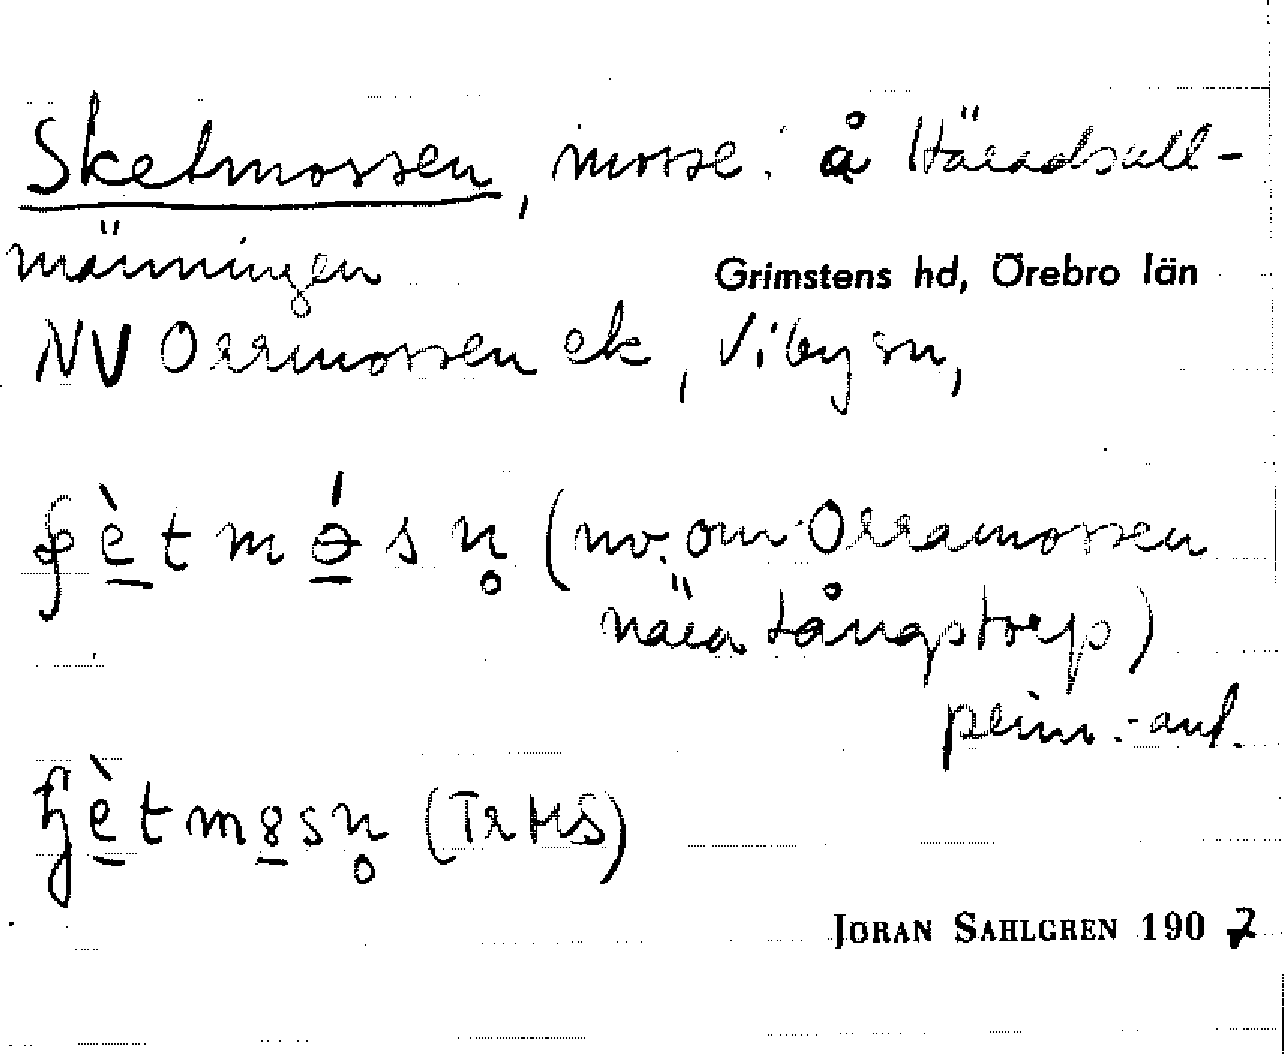 Sketmossen, mosse å Häradsall-
männingen
Grimstens hd, Örebro län
NV Orrmossen ek, Viby sn,
è t m ó s n̥ (nv. om Orramossen
nära Långstorp)
prim.-ant.
è t m s n̥ (Tr HS)
JORAN SAHLGREN 1907